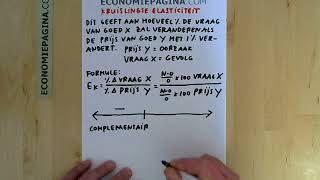 ECONOMIEPAGINA.COM
KRUISLINGSE ELASTICITEIT
DIT GEEFT AAN HOEVEEL % DE VRAAG
VAN GOED X ZAL VERANDEREN ALS
DE PRIJS VAN GOED Y MET 1% VER-
ANDERT. PRIJS Y = OORZAAK
VRAAG X = GEVOLG
FORMULE:
EK = %Δ VRAAG X / %Δ PRIJS Y = N-O/O x 100 VRAAG X / N-O/O x 100 PRIJS Y
—
COMPLEMENTAIR